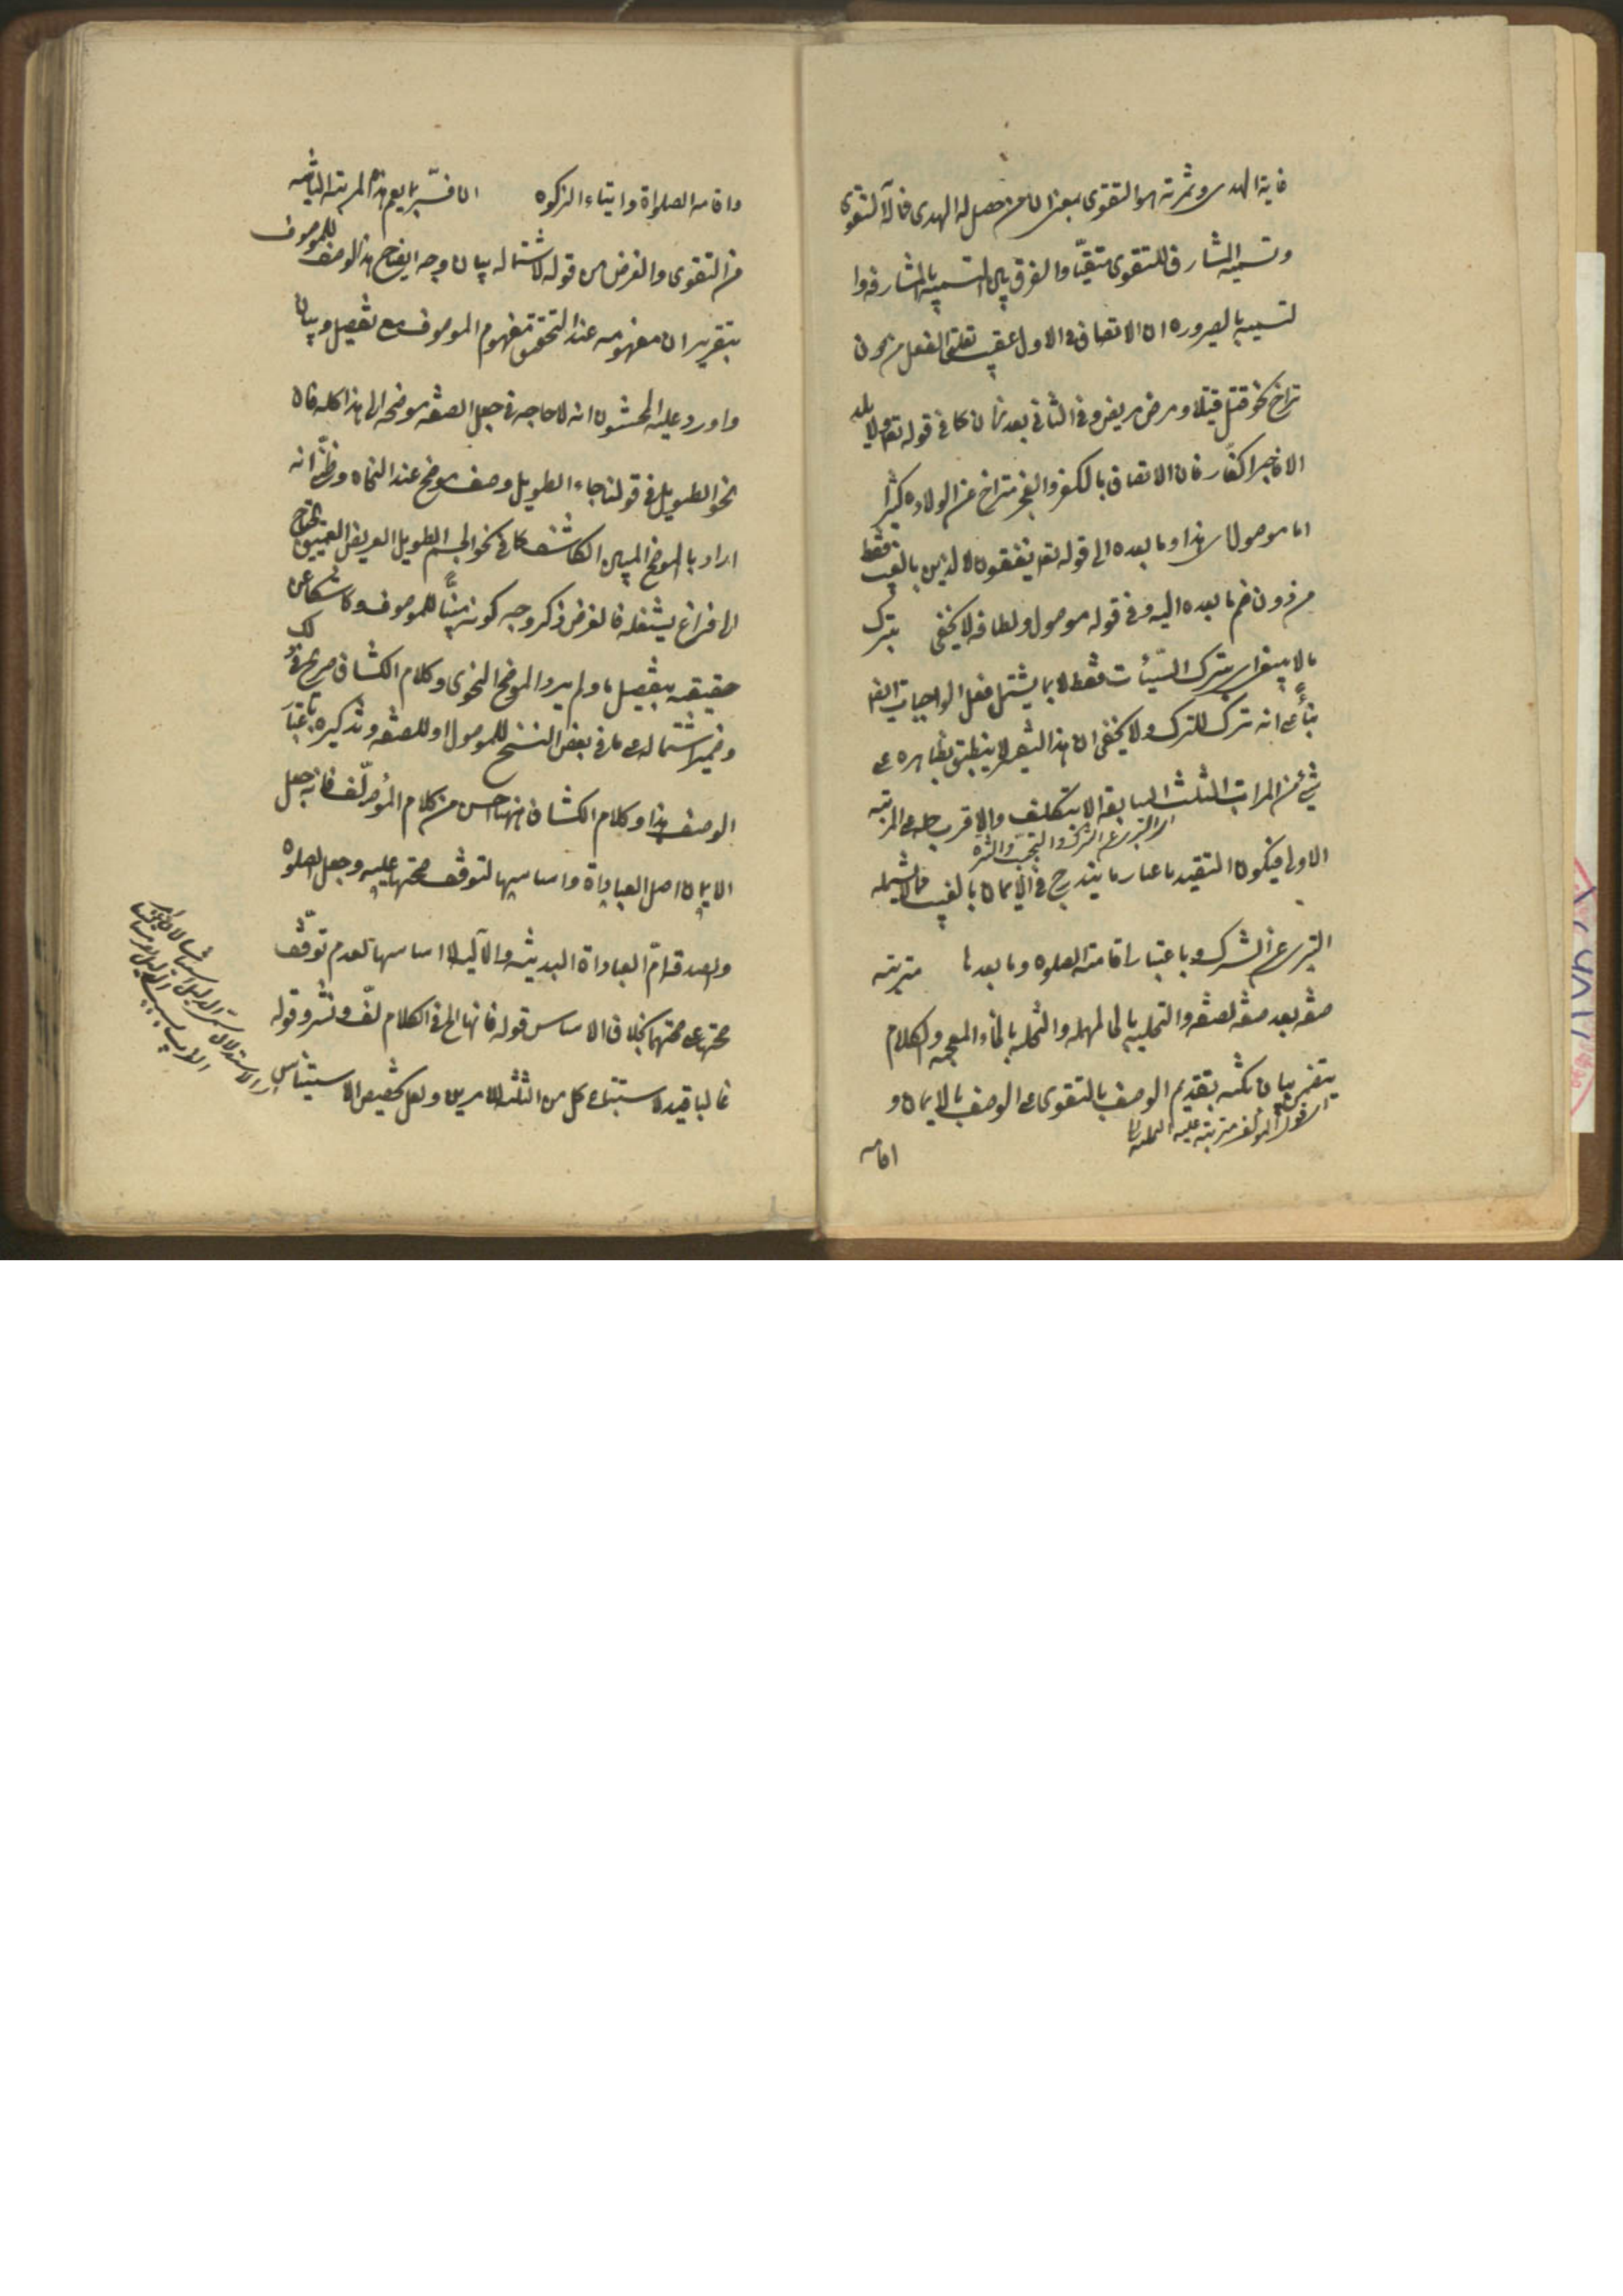 غاية الهدى وثمرته هو التقوى بمعنى ان من حصل له الهدى فمآله التقوى
وتسمية المشارف للتقوى متقيّا والفرق بين التسمية بالمشارفة وا
لتسمية بالصيرورة ان الاتصاف في الاول عقيب تعلق الفعل من دون
تراخ نحو قتل قتيلا ومرض مريض وفي الثاني بعد زمان كما في قوله تعم ولا يلدوا
الا فاجرا كفّارا فان الاتصاف بالكفر والفجر متراخ عن الولادة كثيرا
اما موصول اي هذا وما بعده الى قوله تعم ينفقون لا الذين بالغيب فقط
من دون ضم ما بعده اليه وفي قوله موصول ولطافة لا يخفى بترك
ما لا ينبغي اي بترك السيّئات فقط لا بما يشتمل فعل الواجبات ايضا
بناءً على انه ترك للترك ولا يخفى ان هذا التفسير لا ينطبق بظاهره على
شيء من المراتب الثلث السابقة الا بتكلف والاقرب حمله على المرتبة
اي التبري عن الشرك والتجنب
الاولى فيكون التقييد باعتبار ما يندرج في الايمان بالغيب
التبري عن الشرك وباعتبار اقامة الصلوة وما بعدها مترتبة
صفة بعد صفة لصفة والتحلية بالحاء المهملة والتخلية بالخاء المعجمة والكلام
يتضمن بيان نكتة تقديم الوصف بالتقوى على الوصف بالايمان و
اي قول المؤلف مترتبة عليه
اقامه
واقامه الصلواة وايتاء الزكوه ان فسّر بما يعم هذا المرتبة الثانية
من التقوى والغرض من قوله لاشتماله بيان وجه ايضاح هذا الوصف للموصوف
بتقرير ان مفهومه عند التحقيق مفهوم الموصوف مع تفصيل وبيان
واورد عليه المحشّون انه لا حاجه في جعل الصفة موضحة الى هذا كله فان
نحو الطويل في قولنا جاء الطويل وصف موضح عند النحاه وظنّي انه
اراد بالموضح المبين الكاشف كما في نحو الجسم الطويل العريض العميق يحتاج
الى فراغ يشغله فالغرض ذكر وجه كونه مبيّنا للموصوف وكاشفا عن
حقيقته بتفصيل ما ولم يرد الموضح النحوى وكلام الكشاف صريح في ذلك
وضمير اشتماله على ما في بعض النسخ للموصول او للصفة وتذكيره باعتبار
الوصف هذا وكلام الكشاف ههنا احسن من كلام المؤلّف فانه جعل
الايمان اصل العباداة واساسها لتوقف صحتها عليه وجعل الصلوة
والصدقة امّ العباداة البدنية والمالية لا اساسها لعدم توقّف
صحتها على صحتهما بخلاف الاساس قوله فانها الخ في الكلام لفّ ونشر وقوله
غالبا قيد لاستتباع كل من الثلثة الامرين ولعل تخصيص الاستيناس